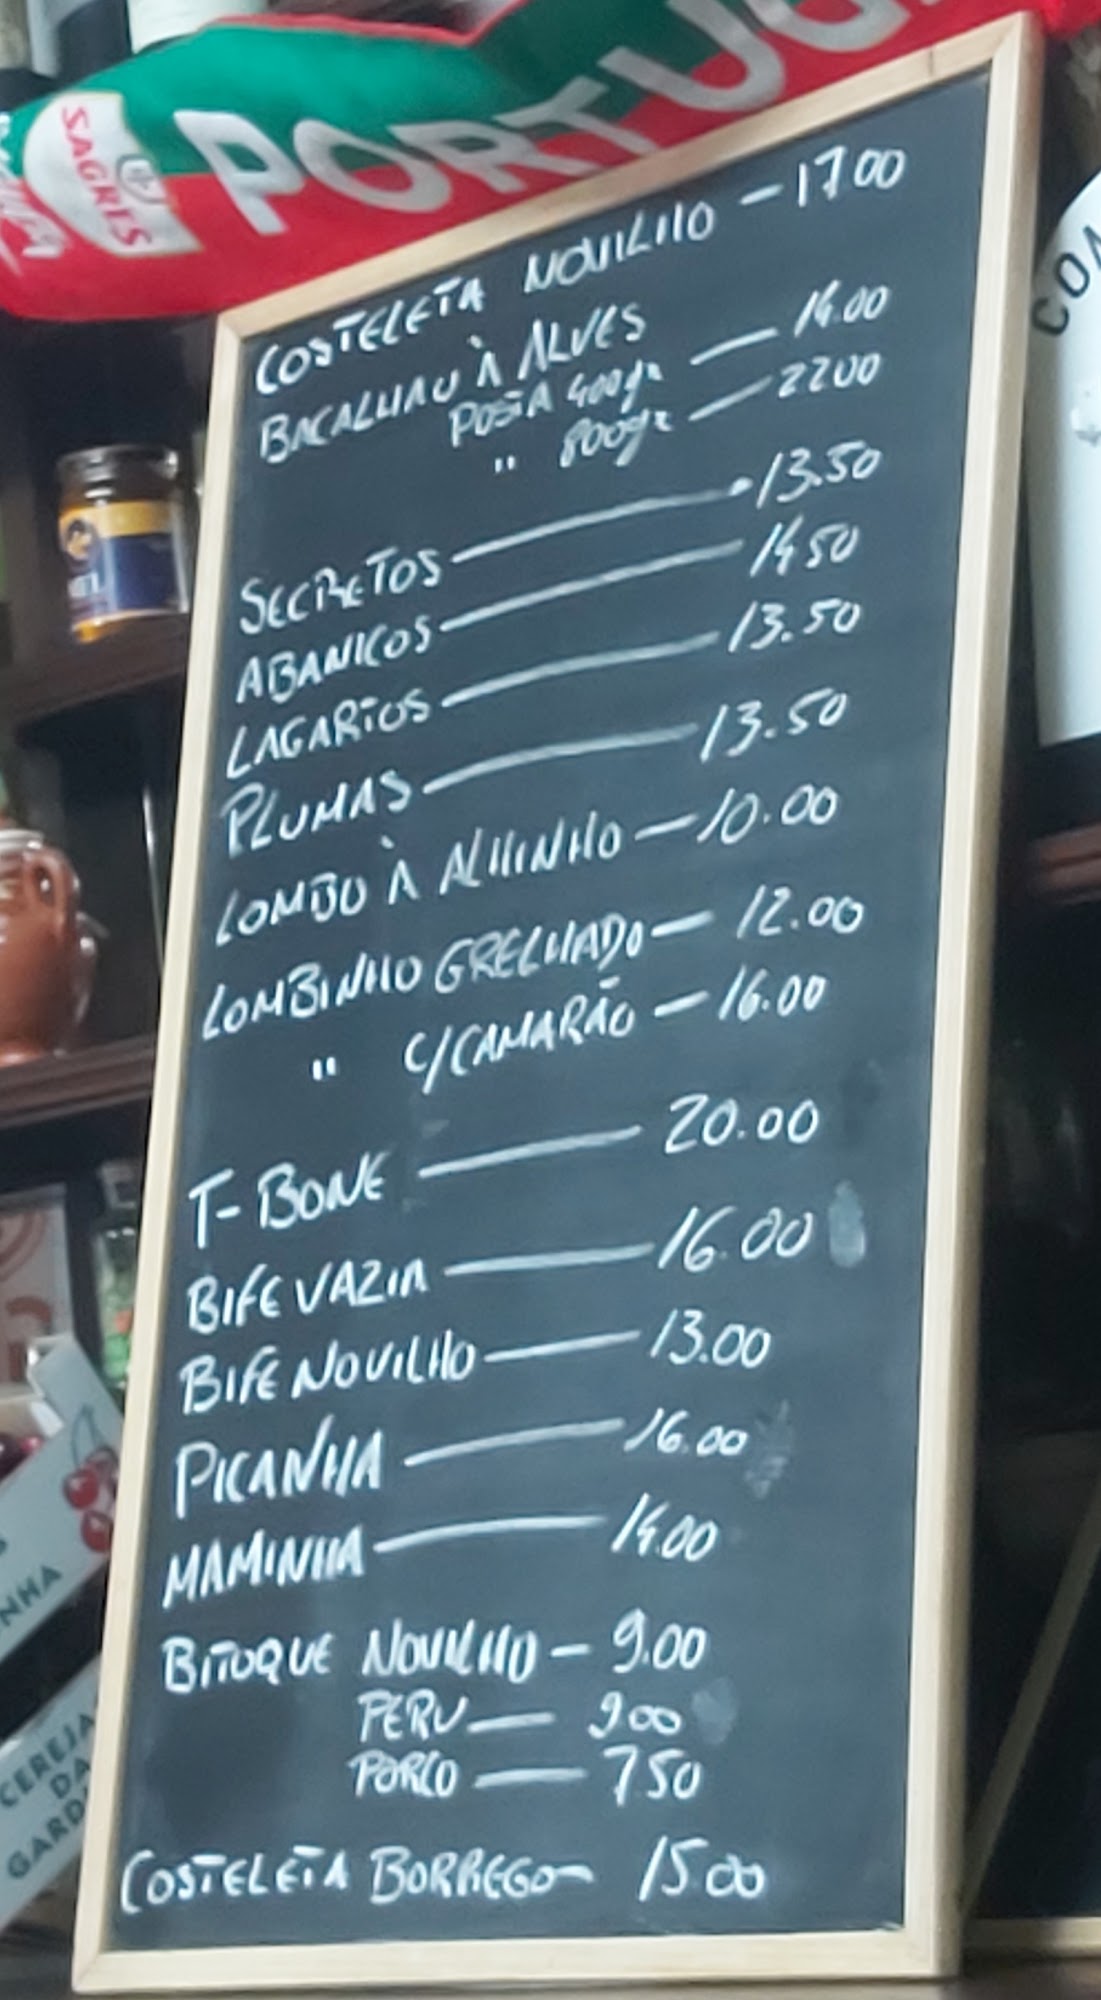 SAGRES
PORTUG
COSTELETA NOVILHO - 1700
BACALHAU À ALVES
POSTA 400gr - 14.00
" 800gr - 2200
SECRETOS - 13.50
ABANICOS - 14 50
LAGARTOS - 13.50
PLUMAS - 13.50
LOMBO À ALHINHO - 10.00
LOMBINHO GRELHADO - 12.00
" C/CAMARÃO - 16.00
T-BONE - 20.00
BIFE VAZIA - 16.00
BIFE NOVILHO - 13.00
PICANHA - 16.00
MAMINHA - 14.00
BITOQUE NOVILHO - 9.00
PERU - 900
PORCO - 750
COSTELETA BORREGO - 15 00
CEREJA
DA
GARD